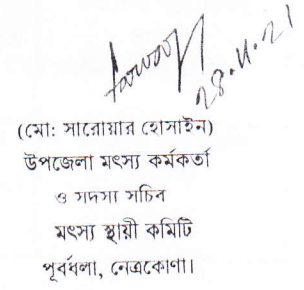 28.11.21
(মো: সারোয়ার হোসাইন)
উপজেলা মৎস্য কর্মকর্তা
ও সদস্য সচিব
মৎস্য স্থায়ী কমিটি
পূর্বধলা, নেত্রকোণা।